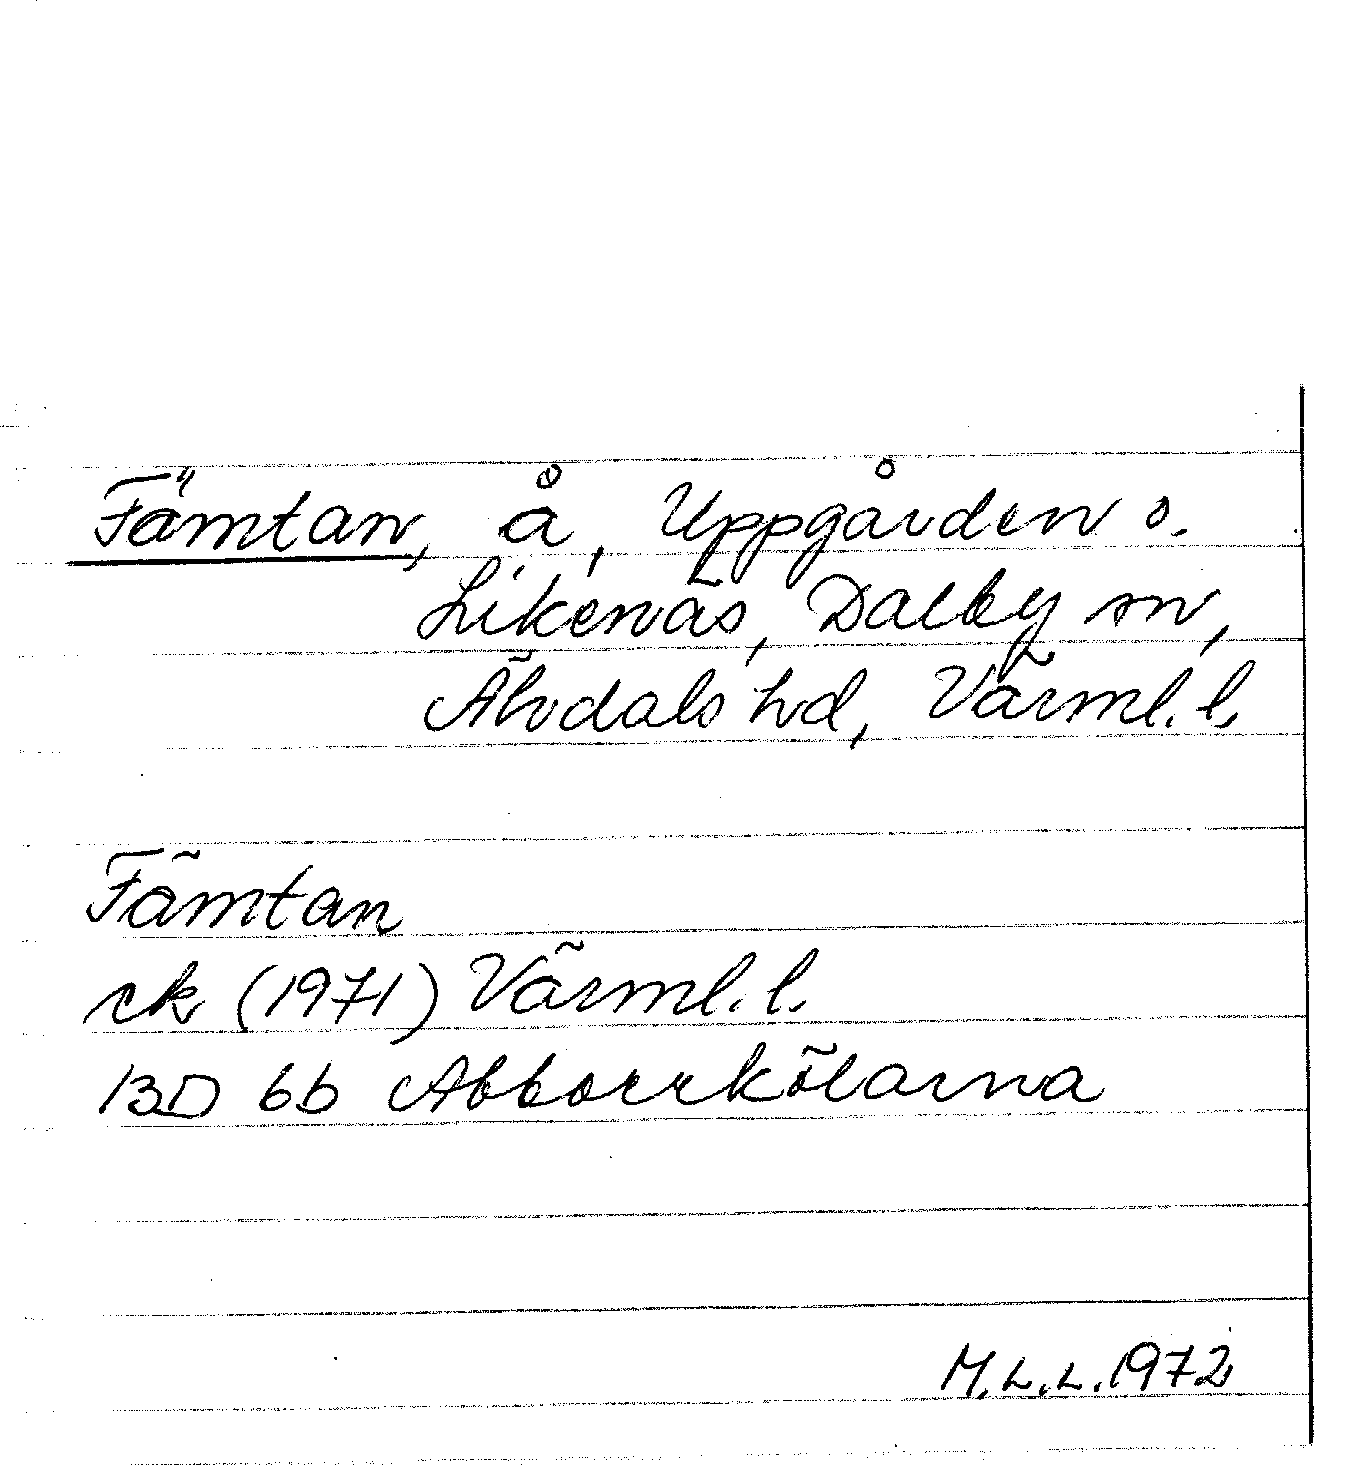 Fämtan, å, Uppgården o.
Likenäs, Dalby sn,
Älvdals hd, Värml. l.
Fämtan
rk (1971) Värml. l.
13D 6b Abborrkölarna
M.L.L. 1972